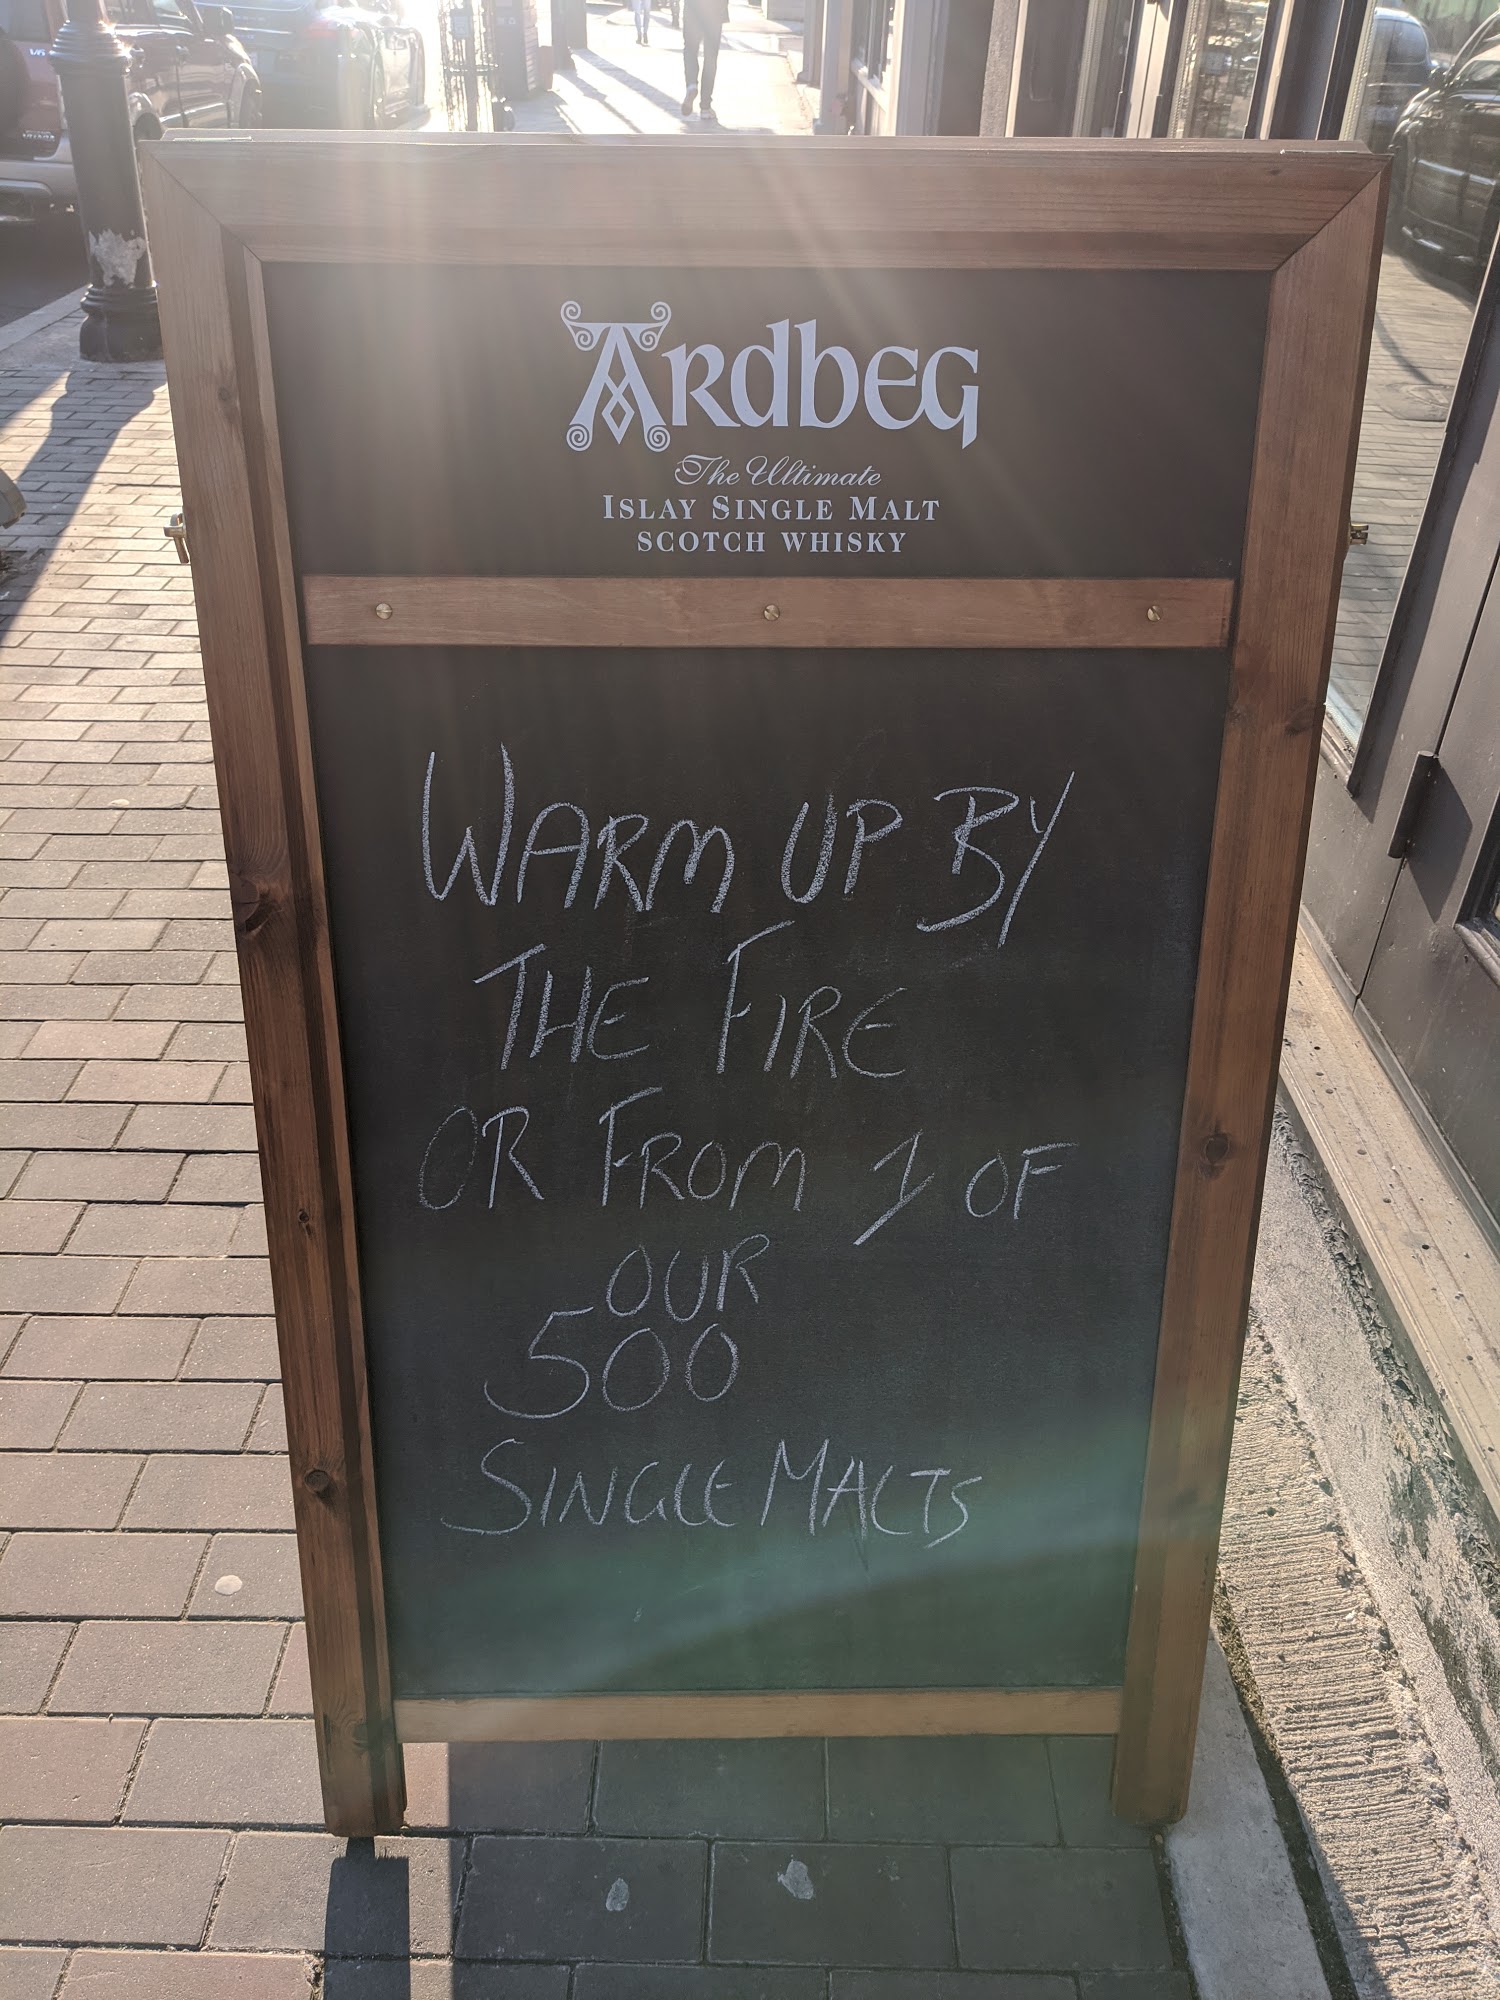 ARdbEG
The Ultimate
ISLAY SINGLE MALT
SCOTCH WHISKY
WARM UP BY
THE FIRE
OR FROM 1 OF
OUR
500
SINGLE MALTS
V6